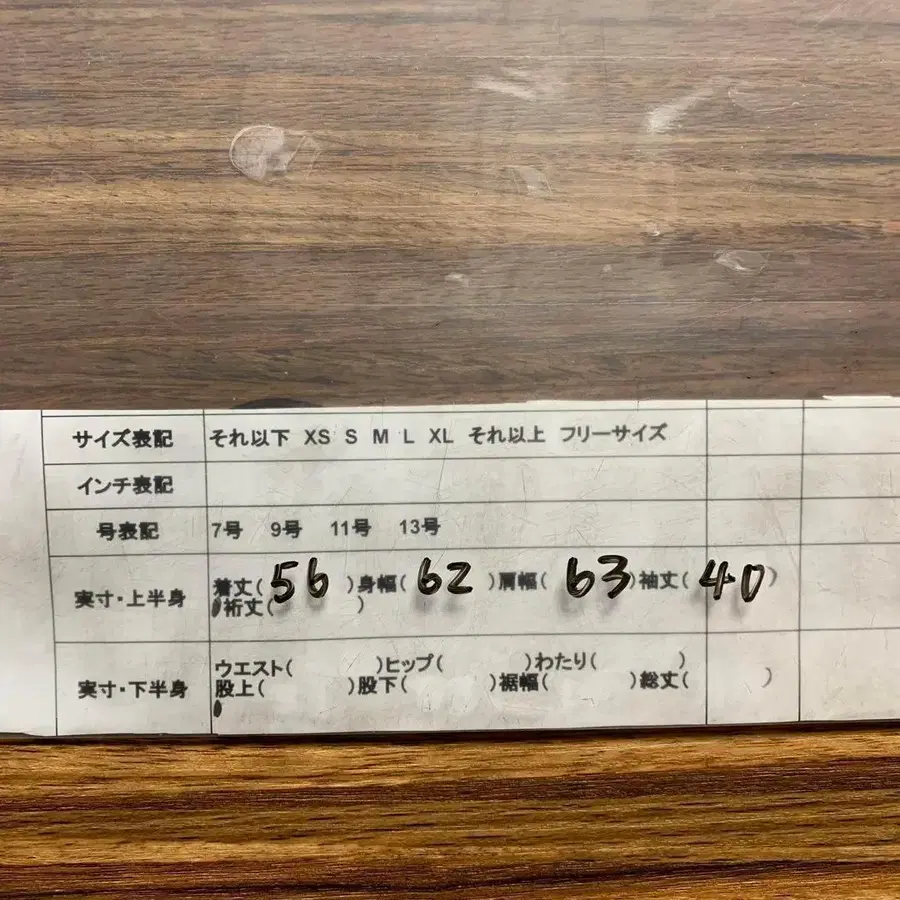 サイズ表記 それ以下 XS S M L XL それ以上 フリーサイズ
インチ表記
号表記 7号 9号 11号 13号
実寸・上半身 着丈(56)身幅(62)肩幅(63)袖丈(40)
裄丈( )
実寸・下半身 ウエスト( )ヒップ( )わたり( )
股上( )股下( )裾幅( )総丈( )